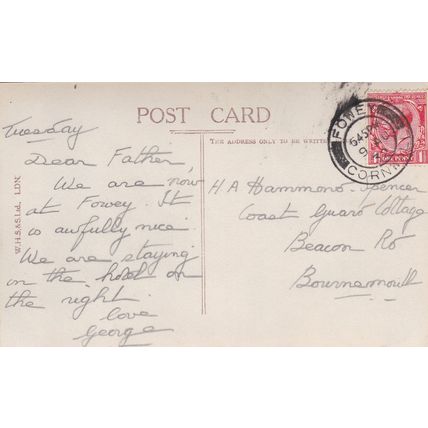 POST CARD
THE ADDRESS ONLY TO BE WRITTEN
W.H.S.&S.Ltd., LDN.
Tuesday
Dear Father,
We are now
at Fowey. It
is awfully nice.
We are staying
in the hotel on
the right.
love
George
H A Hammond Spencer
Coast Guard Cottage
Beacon Rd
Bournemouth
FOWEY
CORNWALL